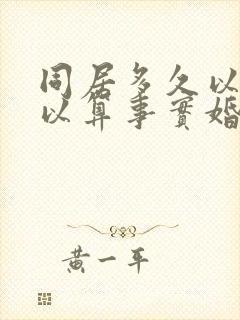 同居多久以
以算事實婚
黄一平